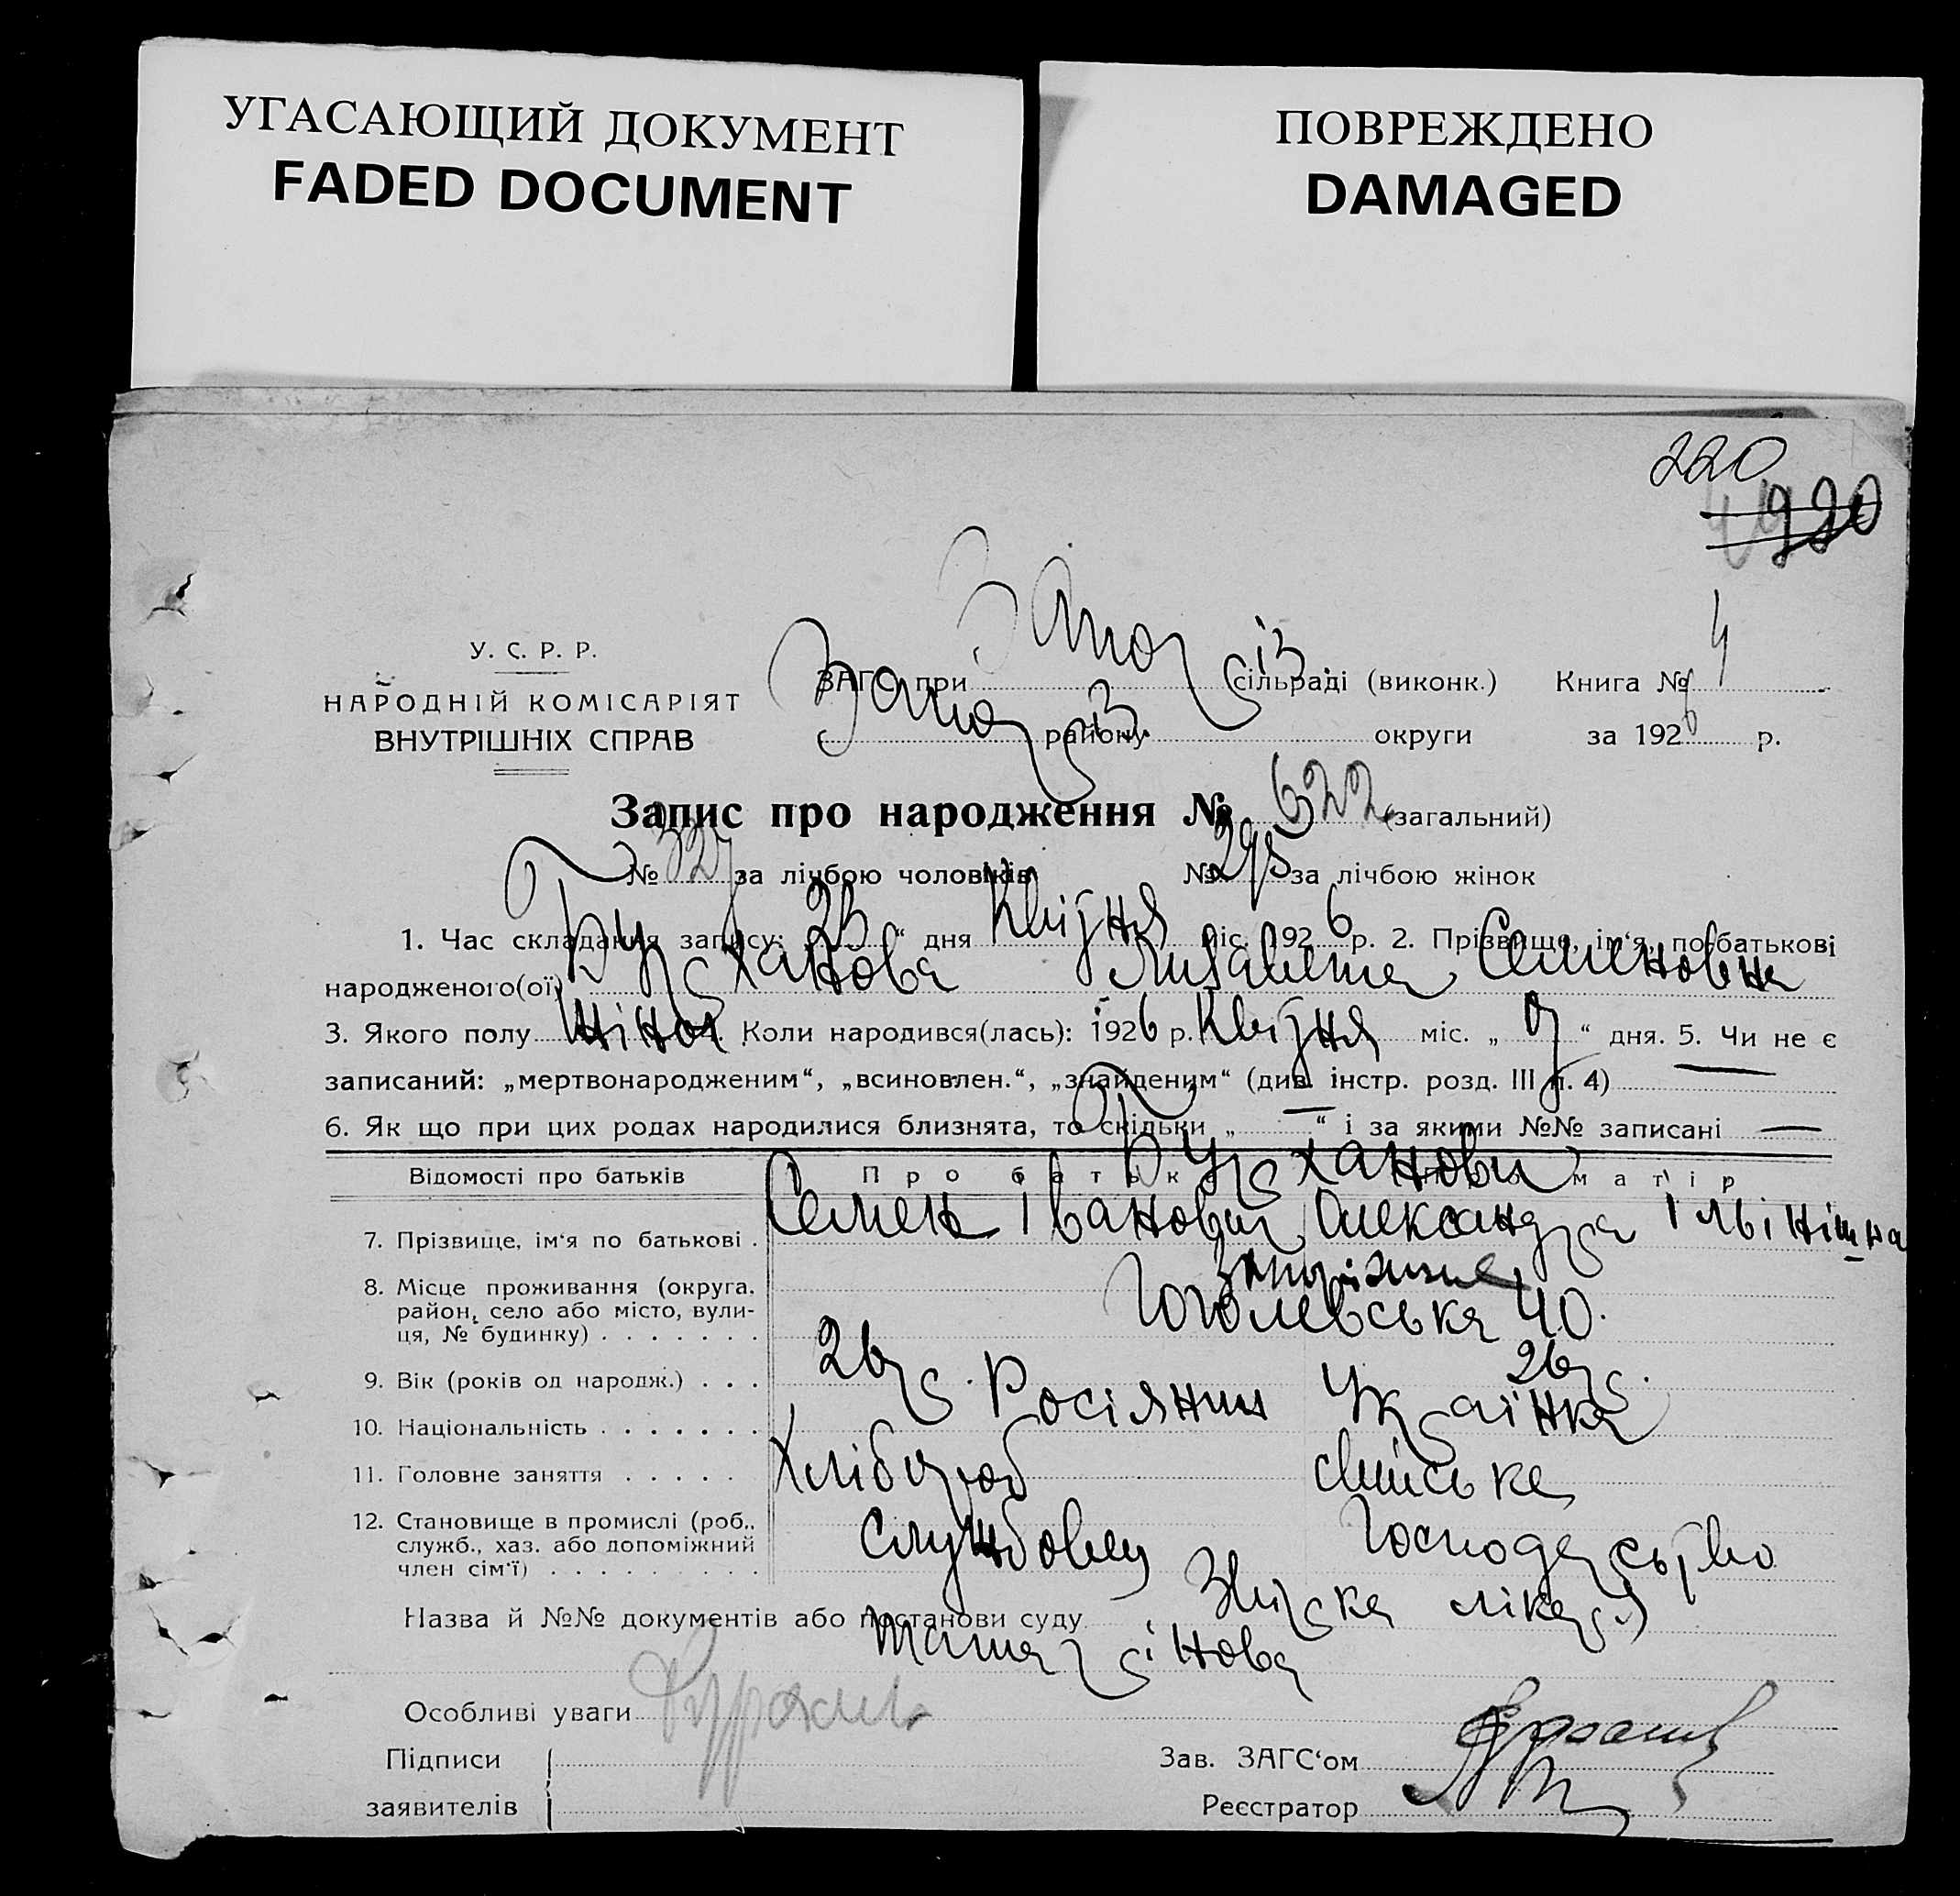 УГАСАЮЩИЙ ДОКУМЕНТ
FADED DOCUMENT
ПОВРЕЖДЕНО
DAMAGED
220
У. С. Р. Р.
НАРОДНІЙ КОМІСАРІЯТ
ВНУТРІШНІХ СПРАВ
ЗАГС при сільраді (виконк.) Книга № 4
району округи за 1926 р.
Запис про народження № 622 (загальний)
№ 327 за лічбою чоловіків № 295 за лічбою жінок
1. Час складання запису: „23“ дня Квітня міс. 1926 р. 2. Прізвище, ім‘я, по-батькові
народженого(ої) Бурханова Лизавета Семеновна
3. Якого полу жіноч. Коли народився(лась): 1926 р. Квітня міс. „ “ дня. 5. Чи не є
записаний: „мертвонародженим“, „всиновлен.“, „знайденим“ (див. інстр. розд. III п. 4) —
6. Як що при цих родах народилися близнята, то скільки „—“ і за якими №№ записані —
Відомості про батьків Про батька матір
Бурханови
7. Прізвище, ім‘я по батькові . Семен Іванович Олександра Ільінішна
8. Місце проживання (округа, район, село або місто, вулиця, № будинку) Запоріжжя
Гоголевська 40.
9. Вік (років од народж.) . . . 26 р. 26 р.
10. Національність Росіянин Українка
11. Головне заняття Хлібороб
12. Становище в промислі (роб., служб., хаз. або допоміжний член сім‘ї) службовец господарство
Назва й №№ документів або постанови суду Звірка лікаря
Особливі уваги
Підписи
заявителів
Зав. ЗАГС‘ом
Реєстратор